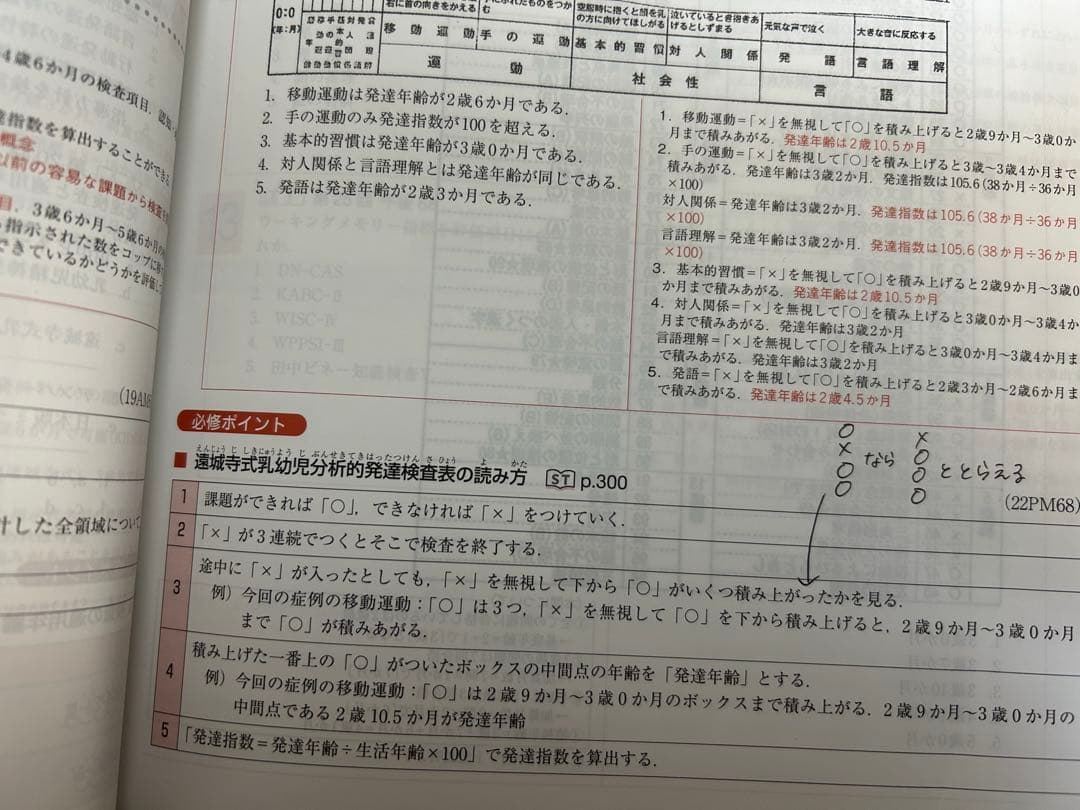 4歳6か月の検査項目，認知・
達指数を算出することができる
概念
以前の容易な課題から検査を
目．3歳6か月〜5歳6か月の
指示された数をコップに
できているかどうかを評価し
(19AM
計した全領域について
0:0
(年:月)
右に首の向きをかえる
空腹時に抱くと顔を乳の方に向けてほしがる
泣いているとき抱きあげるとしずまる
元気な声で泣く
大きな音に反応する
移動運動
手の運動
基本的習慣
対人関係
発語
言語理解
運動
社会性
言語
1. 移動運動は発達年齢が2歳6か月である．
2. 手の運動のみ発達指数が100を超える．
3. 基本的習慣は発達年齢が3歳0か月である．
4. 対人関係と言語理解とは発達年齢が同じである．
5. 発語は発達年齢が2歳3か月である．
1．移動運動＝「×」を無視して「〇」を積み上げると2歳9か月〜3歳0か
月まで積みあがる．発達年齢は2歳10.5か月
2．手の運動＝「×」を無視して「〇」を積み上げると3歳〜3歳4か月まで
積みあがる．発達年齢は3歳2か月．発達指数は105.6(38か月÷36か月
×100)
対人関係＝発達年齢は3歳2か月．発達指数は105.6(38か月÷36か月
×100)
言語理解＝発達年齢は3歳2か月．発達指数は105.6(38か月÷36か月
×100)
3．基本的習慣＝「×」を無視して「〇」を積み上げると2歳9か月〜3歳0
か月まで積みあがる．発達年齢は2歳10.5か月
4．対人関係＝「×」を無視して「〇」を積み上げると3歳0か月〜3歳4か
月まで積みあがる．発達年齢は3歳2か月
言語理解＝「×」を無視して「〇」を積み上げると3歳0か月〜3歳4か月ま
で積みあがる．発達年齢は3歳2か月
5．発語＝「×」を無視して「〇」を積み上げると2歳3か月〜2歳6か月ま
で積みあがる．発達年齢は2歳4.5か月
1. DN-CAS
2. KABC-Ⅱ
3. WISC-Ⅳ
4. WPPSI-Ⅲ
5. 田中ビネー知能検査
〇
×
〇
〇
なら
×
〇
〇
〇
ととらえる
(22PM68)
必修ポイント
えんじょうじしきにゅうようじぶんせきてきはったつけんさひょう よ かた
■ 遠城寺式乳幼児分析的発達検査表の読み方 ST p.300
1 課題ができれば「〇」，できなければ「×」をつけていく．
2 「×」が3連続でつくとそこで検査を終了する．
3 途中に「×」が入ったとしても，「×」を無視して下から「〇」がいくつ積み上がったかを見る．
例）今回の症例の移動運動：「〇」は3つ，「×」を無視して「〇」を下から積み上げると，2歳9か月〜3歳0か月
まで「〇」が積みあがる．
4 積み上げた一番上の「〇」がついたボックスの中間点の年齢を「発達年齢」とする．
例）今回の症例の移動運動：「〇」は2歳9か月〜3歳0か月のボックスまで積み上がる．2歳9か月〜3歳0か月の
中間点である2歳10.5か月が発達年齢
5 「発達指数＝発達年齢÷生活年齢×100」で発達指数を算出する．